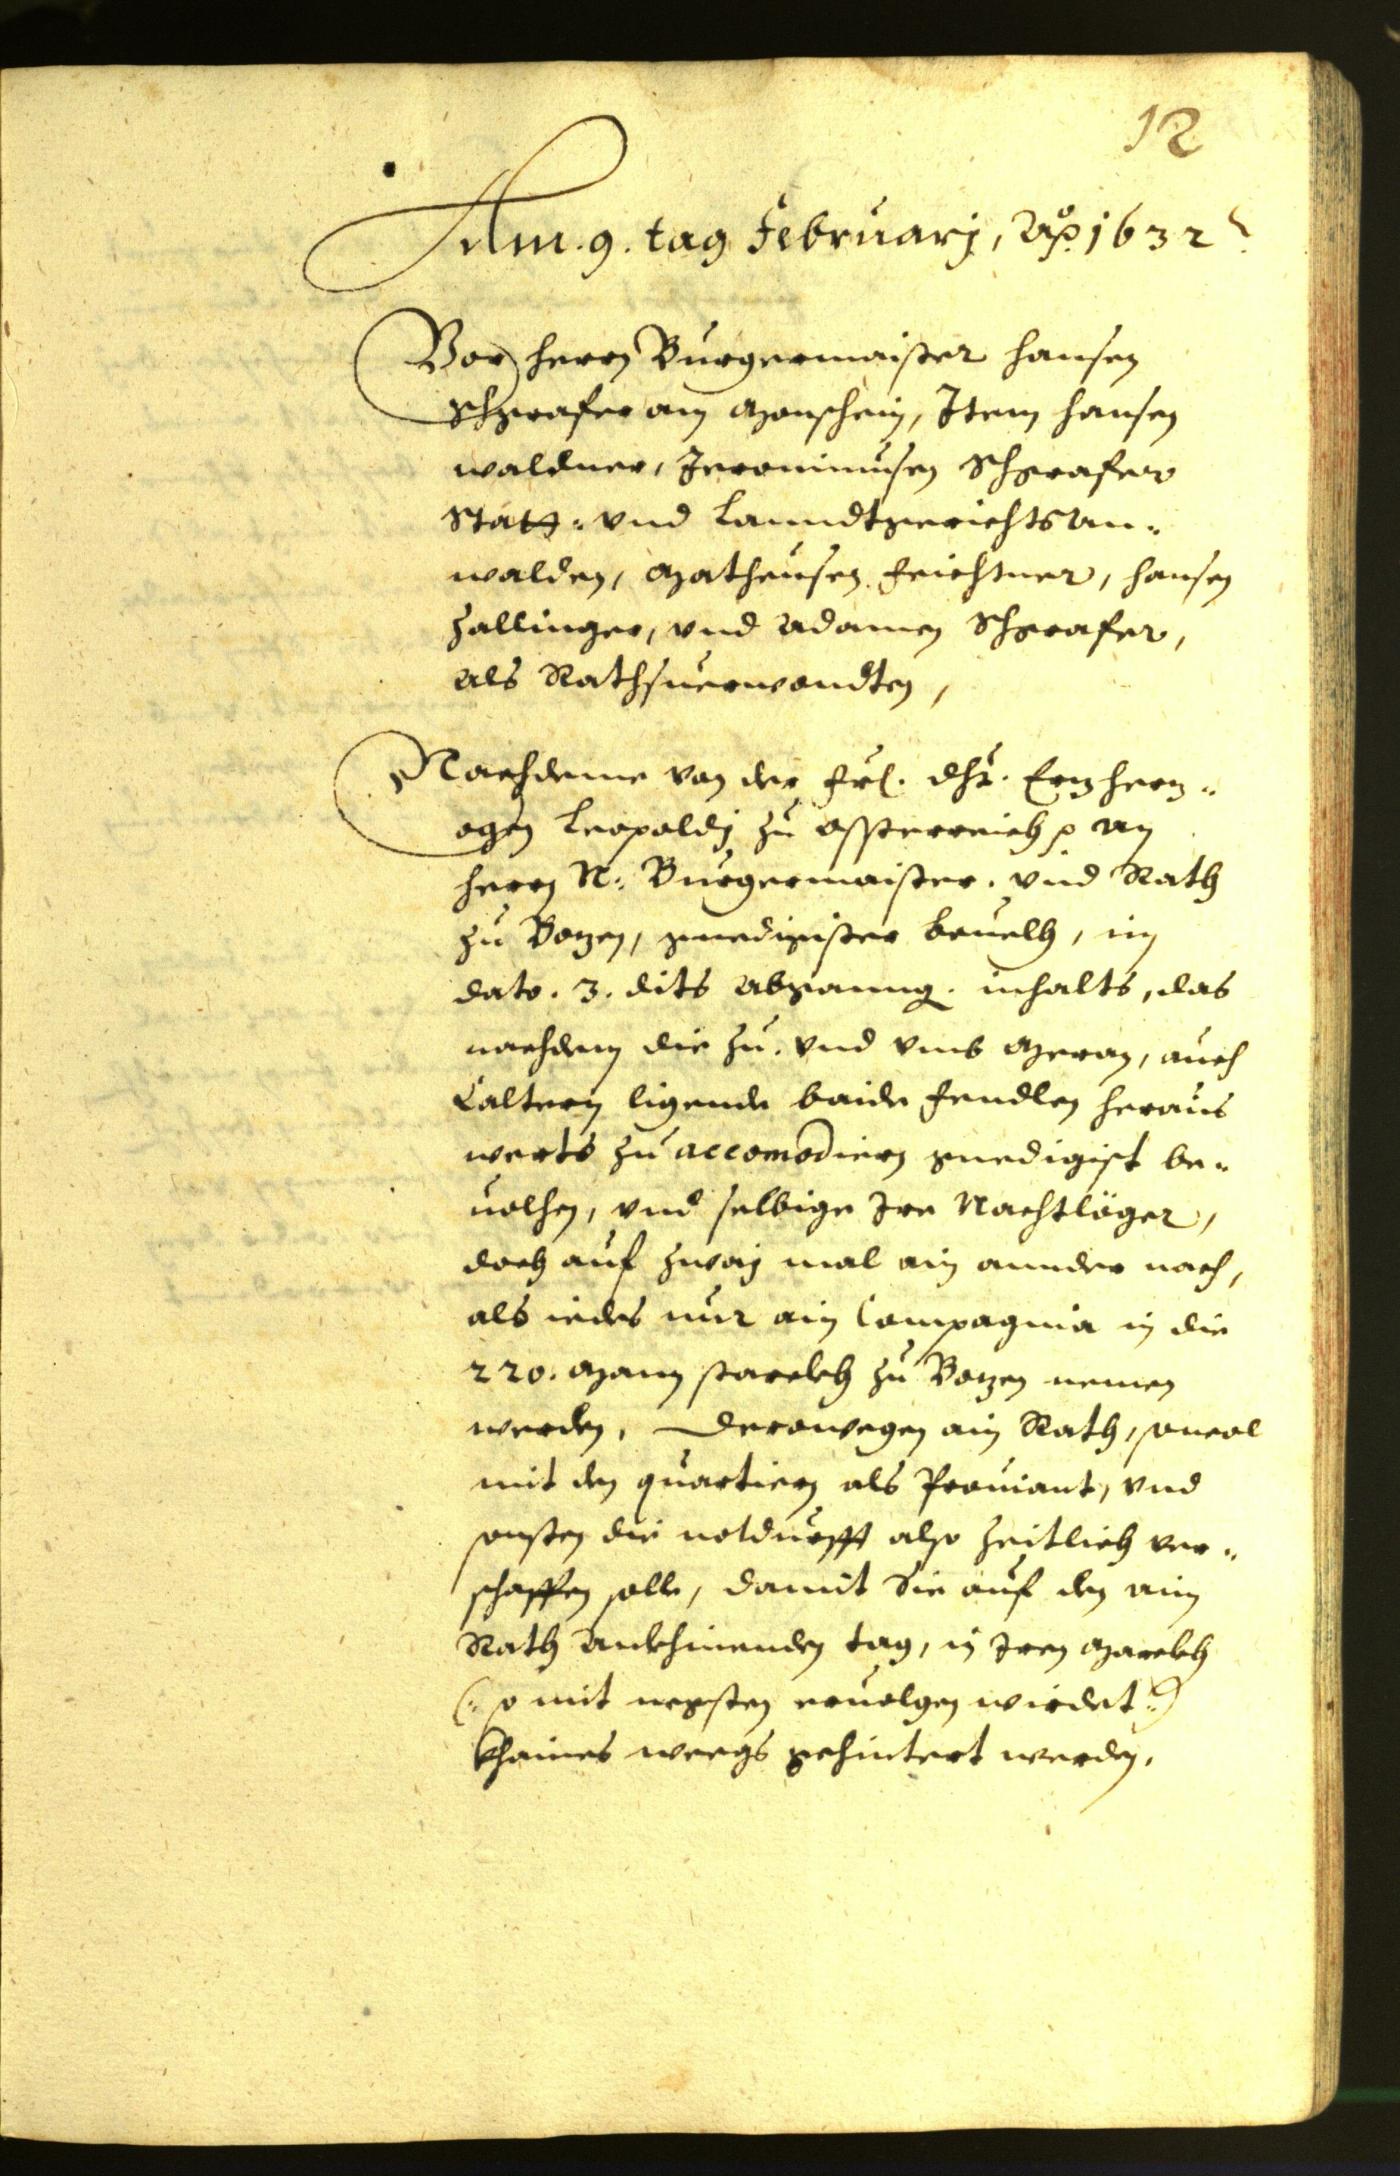 12
Am. 9. tag Februarj, Aº. 1632
Vor herrn Burgermaister Hansen
Schgrafer am Monschein, Item Hansen
Waldner, Jeronimusen Schgrafer
Statt- und Lanndtgerichts An-
walden, Matheusen Feichtner, Hansen
Zallinger, und Adamen Schgrafer,
als Rathsuerwandten,
Nachdeme von der frl. dht. Erzherz-
ogen Leopoldj zu Össterreich an
herrn N: Burgermaister. und Rath
zu Bozen, gnedigister beuelh, in
dato. 3. dits abganng. inhalts, das
nachdem die zu. und umb Meran, auch
Caltern ligende baide Fendlen heraus
werts zu accomodiern gnedigist be-
uolhen, und selbige Ire Nachtläger,
doch auf zwaj mal ain annder nach,
als iedes nur ain Compagnia in die
220. Mann starckh zu Bozen nemen
werden, Derowegen ain Rath, souol
mit den quartiern als Prouiant, und
sonsten die notdurfft also zeitlich ver-
schaffen solle, damit Sie auf den aim
Rath ankhinenden tag, in Iren March
(: so mit negsten eruolgen wirdet :)
khaines weegs gehintert werden.